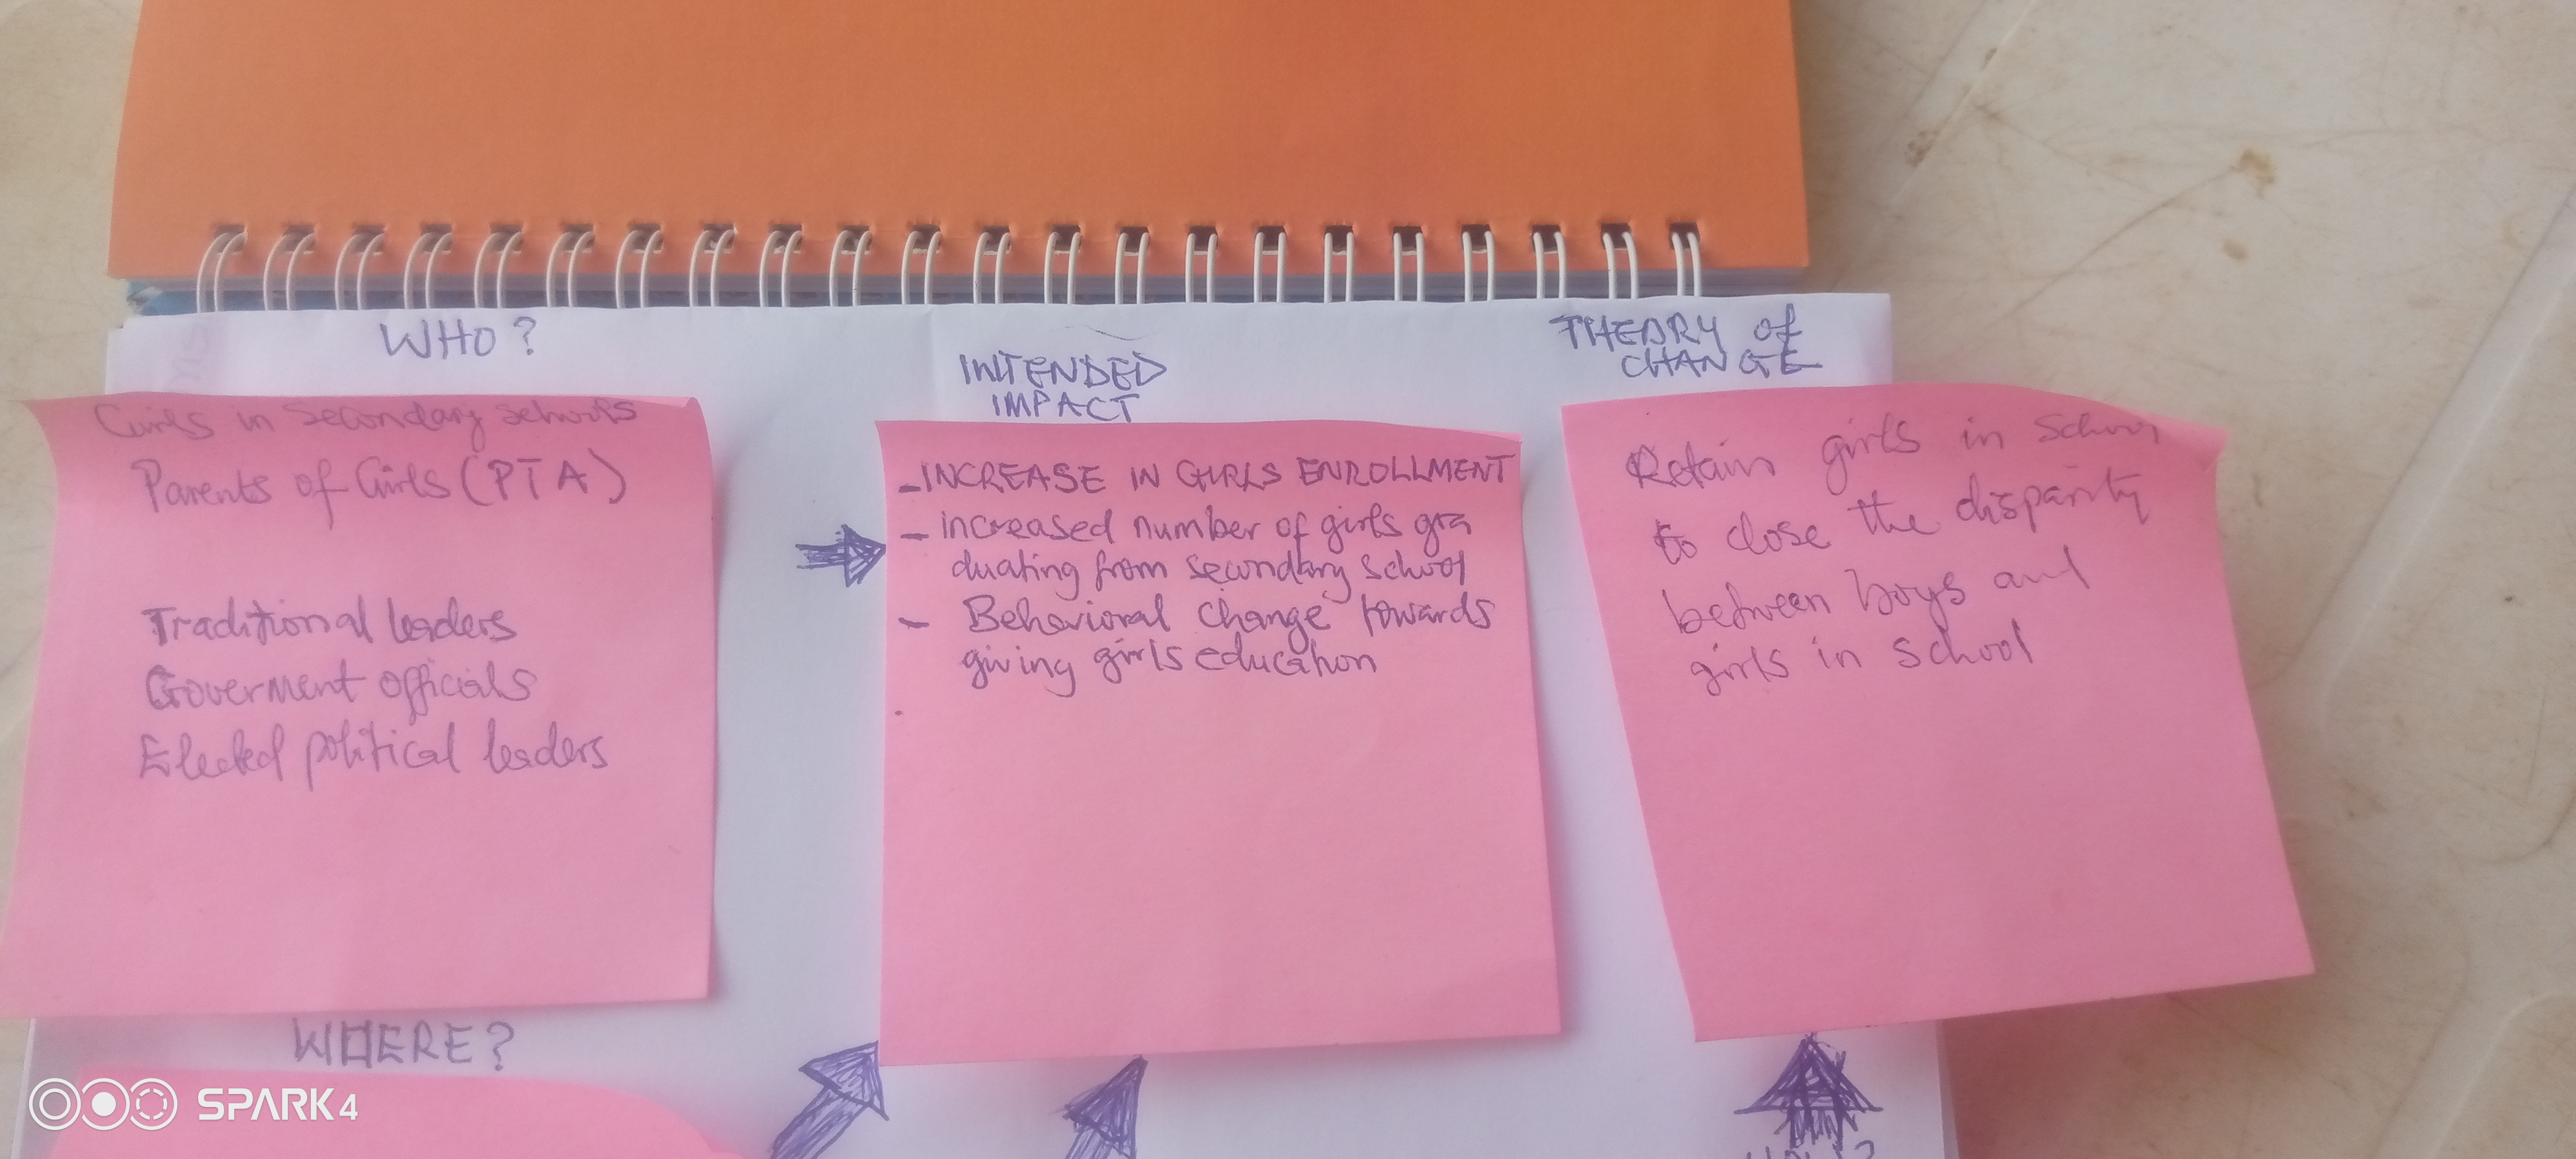 WHO?
Girls in Secondary schools
Parents of Girls (PTA)
Traditional leaders
Goverment officials
Elected political leaders
WHERE?
INTENDED
IMPACT
- INCREASE IN GIRLS ENROLLMENT
- increased number of girls gra
duating from secondary school
- Behavioral change towards
giving girls education
THEORY of
CHANGE
Retain girls in School
to close the disparity
between boys and
girls in school
SPARK 4